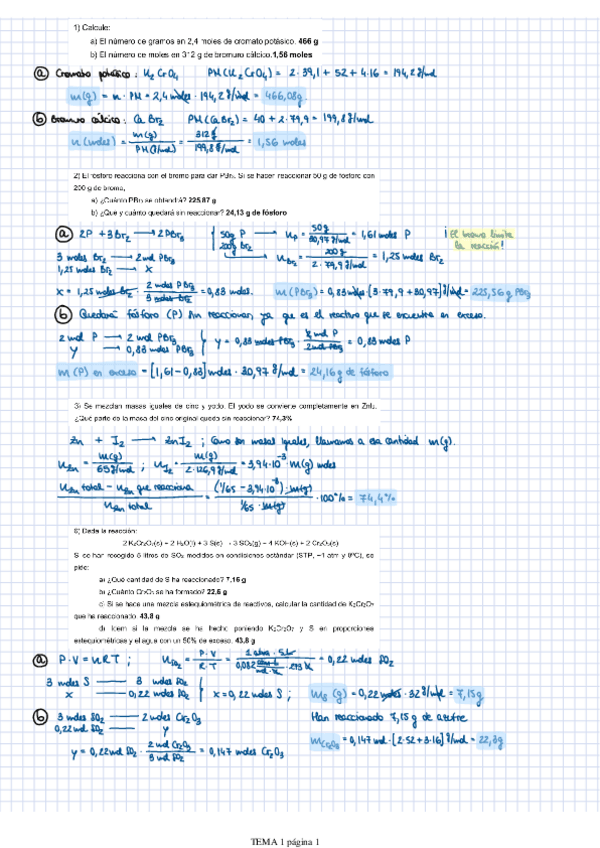 1) Calcule:
a) El número de gramos en 2,4 moles de cromato potásico. 466 g
b) El número de moles en 312 g de bromuro cálcico. 1,56 moles
a) Cromato potásico: K₂CrO₄ PM(K₂CrO₄) = 2·39,1 + 52 + 4·16 = 194,2 g/mol
m(g) = n · PM = 2,4 moles · 194,2 g/mol = 466,08g
b) Bromuro cálcico: CaBr₂ PM(CaBr₂) = 40 + 2·79,9 = 199,8 g/mol
n(moles) = m(g)/PM(g/mol) = 312g/199,8 g/mol = 1,56 moles
2) El fósforo reacciona con el bromo para dar PBr₃. Si se hacen reaccionar 50 g de fósforo con
200 g de bromo,
a) ¿Cuánto PBr₃ se obtendrá? 225,87 g
b) ¿Qué y cuánto quedará sin reaccionar? 24,13 g de fósforo
a) 2P + 3Br₂ → 2PBr₃ 50g P → n_P = 50g/30,97 g/mol = 1,61 moles P ¡El bromo limita
200g Br₂ la reacción!
3 moles Br₂ → 2 mol PBr₃ n_Br₂ = 200g/2·79,9 g/mol = 1,25 moles Br₂
1,25 moles Br₂ → x
x = 1,25 moles Br₂ · 2 moles PBr₃/3 moles Br₂ = 0,83 moles. m(PBr₃) = 0,83 moles · [3·79,9 + 30,97] g/mol = 225,56 g PBr₃
b) Quedará fósforo (P) sin reaccionar, ya que es el reactivo que se encuentra en exceso.
2 mol P → 2 mol PBr₃ y = 0,83 moles PBr₃ · 2 mol P/2 mol PBr₃ = 0,83 moles P
y → 0,83 moles PBr₃
m(P) en exceso = [1,61-0,83] moles · 30,97 g/mol = 24,16 g de fósforo
3) Se mezclan masas iguales de cinc y yodo. El yodo se convierte completamente en ZnI₂.
¿Qué parte de la masa del cinc original queda sin reaccionar? 74,3%
Zn + I₂ → ZnI₂ ; Como son masas iguales, llamamos a esa cantidad m(g).
n_Zn = m(g)/65 g/mol ; n_I₂ = m(g)/2·126,9 g/mol = 3,94·10⁻³ · m(g) moles
n_Zn total - n_Zn que reacciona/n_Zn total = (1/65 - 3,94·10⁻³)·m(g)/1/65·m(g) ·100% = 74,4%
Dada la reacción:
2 K₂Cr₂O₇(s) + 2 H₂O(l) + 3 S(s) → 3 SO₂(g) + 4 KOH(s) + 2 Cr₂O₃(s)
Si se han recogido 5 litros de SO₂ medidos en condiciones estándar (STP, =1 atm y 0ºC), se
pide:
a) ¿Qué cantidad de S ha reaccionado? 7,16 g
b) ¿Cuánto Cr₂O₃ se ha formado? 22,6 g
c) Si se hace una mezcla estequiométrica de reactivos, calcular la cantidad de K₂Cr₂O₇
que ha reaccionado. 43,8 g
d) Idem si la mezcla se ha hecho poniendo K₂Cr₂O₇ y S en proporciones
estequiométricas y el agua con un 50% de exceso. 43,8 g
a) P·V = nRT ; n_SO₂ = P·V/R·T = 1 atm · 5L/0,082 atm·L/mol·K · 273K = 0,22 moles SO₂
3 moles S → 3 moles SO₂ x = 0,22 moles S ; m_S (g) = 0,22 moles · 32 g/mol = 7,15g
x → 0,22 moles SO₂
b) 3 moles SO₂ → 2 moles Cr₂O₃ Han reaccionado 7,15 g de azufre
0,22 mol SO₂ → y
y = 0,22 mol SO₂ · 2 mol Cr₂O₃/3 mol SO₂ = 0,147 moles Cr₂O₃ m_Cr₂O₃ = 0,147 mol · [2·52+3·16] g/mol = 22,3g
TEMA 1 página 1